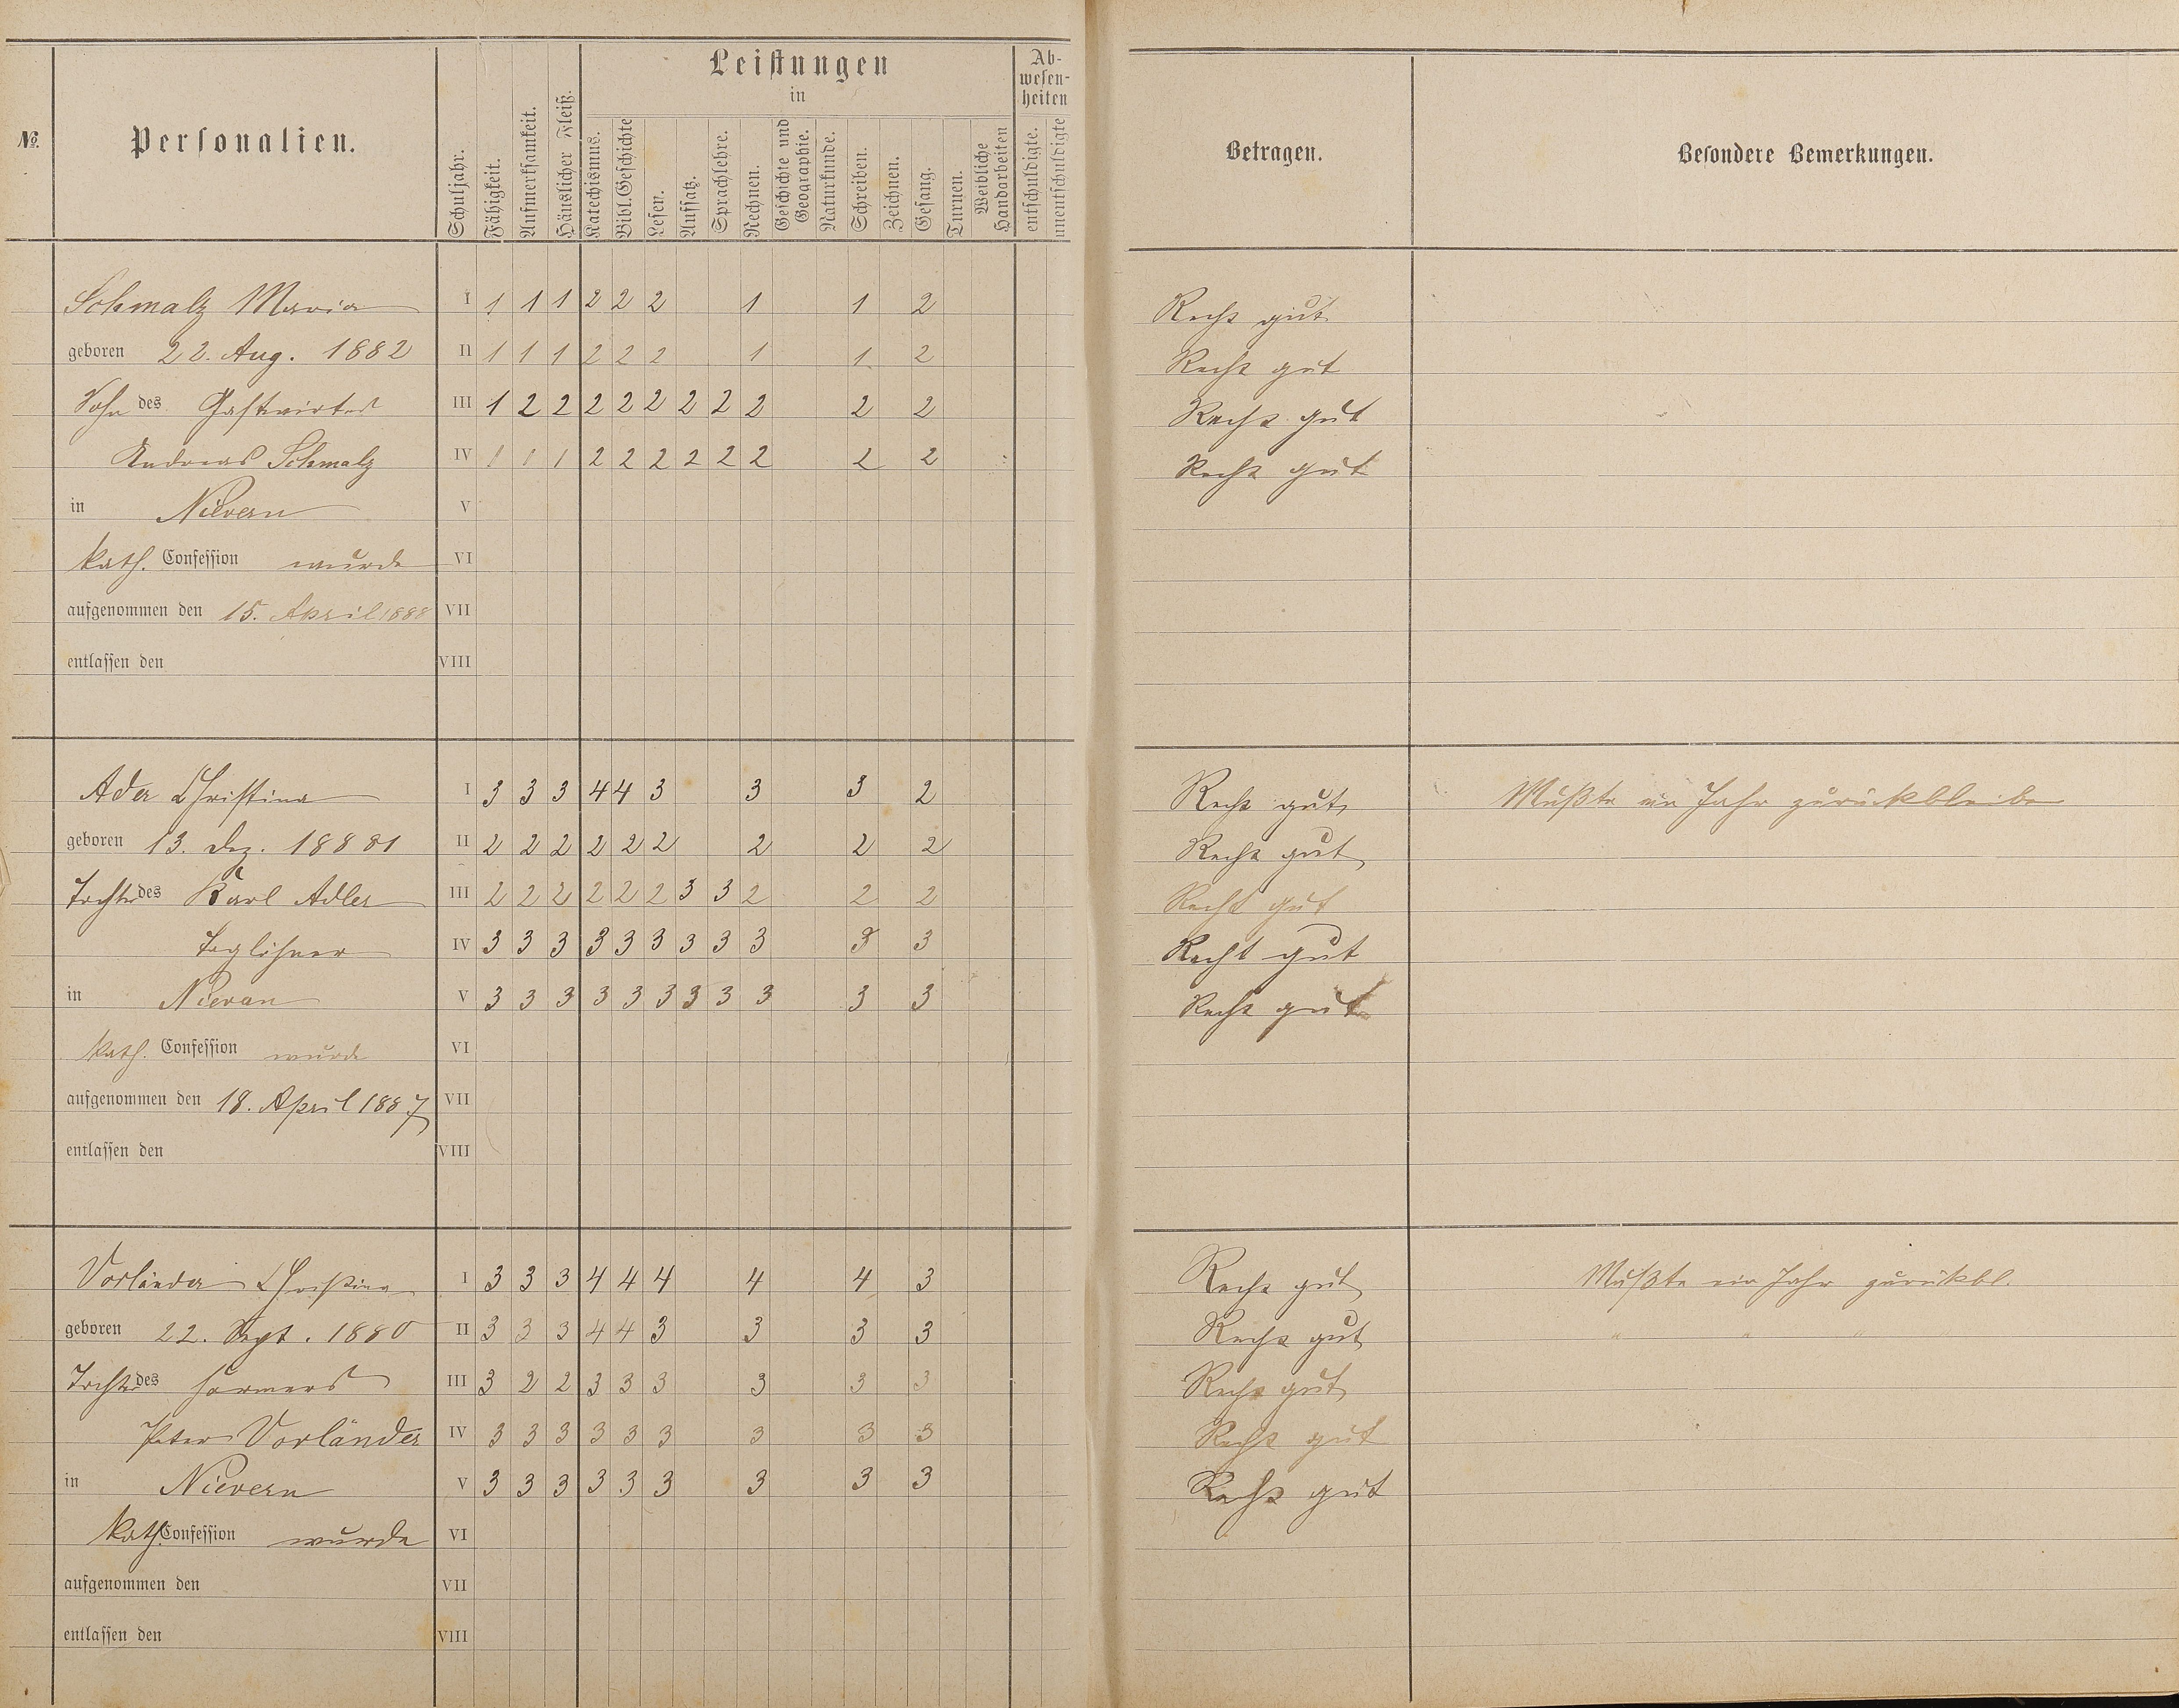 Leistungen
in
Ab-
wesen-
heiten
№.
Personalien.
Schuljahr.
Fähigkeit.
Aufmerksamkeit.
Häuslicher Fleiß.
Katechismus.
Bibl. Geschichte
Lesen.
Aufsatz.
Sprachlehre.
Rechnen.
Geschichte und
Geographie.
Naturkunde.
Schreiben.
Zeichnen.
Gesang.
Turnen.
Weibliche
Handarbeiten
entschuldigte.
unentschuldigte
Betragen.
Besondere Bemerkungen.
Schmalz Maria I 1 1 1 2 2 2 1 1 2 Recht gut
geboren 22. Aug. 1882 II 1 1 1 2 2 2 1 1 2 Recht gut
Sohn des Gastwirtes III 1 2 2 2 2 2 2 2 2 2 2 Recht gut
Andreas Schmalz IV 1 1 1 2 2 2 2 2 2 2 2 Recht gut
in Nievern V
kath. Confession wurde VI
aufgenommen den 15. April 1888 VII
entlassen den VIII
Ader Christina I 3 3 3 4 4 3 3 3 2 Recht gut Mußte ein Jahr zurückbleiben
geboren 13. Dez. 18881 II 2 2 2 2 2 2 2 2 2 Recht gut
Tochter des Karl Adler III 2 2 2 2 2 2 3 3 2 2 2 Recht gut
Taglöhner IV 3 3 3 3 3 3 3 3 3 3 3 Recht gut
in Nievern V 3 3 3 3 3 3 3 3 3 3 3 Recht gut
kath. Confession wurde VI
aufgenommen den 18. April 1887 VII
entlassen den VIII
Vorländer Christina I 3 3 3 4 4 4 4 4 3 Recht gut Mußte ein Jahr zurückbl.
geboren 22. Sept. 1880 II 3 3 3 4 4 3 3 3 3 Recht gut " " "
Tochter des Formers III 3 2 2 3 3 3 3 3 3 Recht gut
Peter Vorländer IV 3 3 3 3 3 3 3 3 3 Recht gut
in Nievern V 3 3 3 3 3 3 3 3 3 Recht gut
kath. Confession wurde VI
aufgenommen den VII
entlassen den VIII